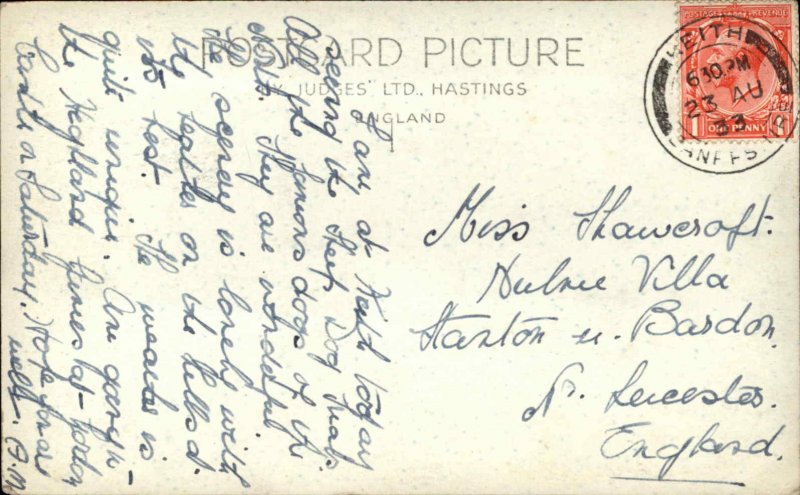 POSTCARD PICTURE
JUDGES' LTD., HASTINGS
ENGLAND
POSTAGE REVENUE
ONE PENNY
KEITH
6 30 PM
23 AU
33
BANFFSH
I am at Keith today
seeing the Sheep Dog Trials
All the famous dogs of the
North. They are wonderful
The scenery is lovely with
the heather on the hills &
its best. The weather is
quite unique. Am going
the Highland Games at Gordon
Castle on Saturday. Hope you are
well. B.M.
Miss Shawcroft.
Hulme Villa
Stanton u. Bardon.
Nr. Leicester.
England.